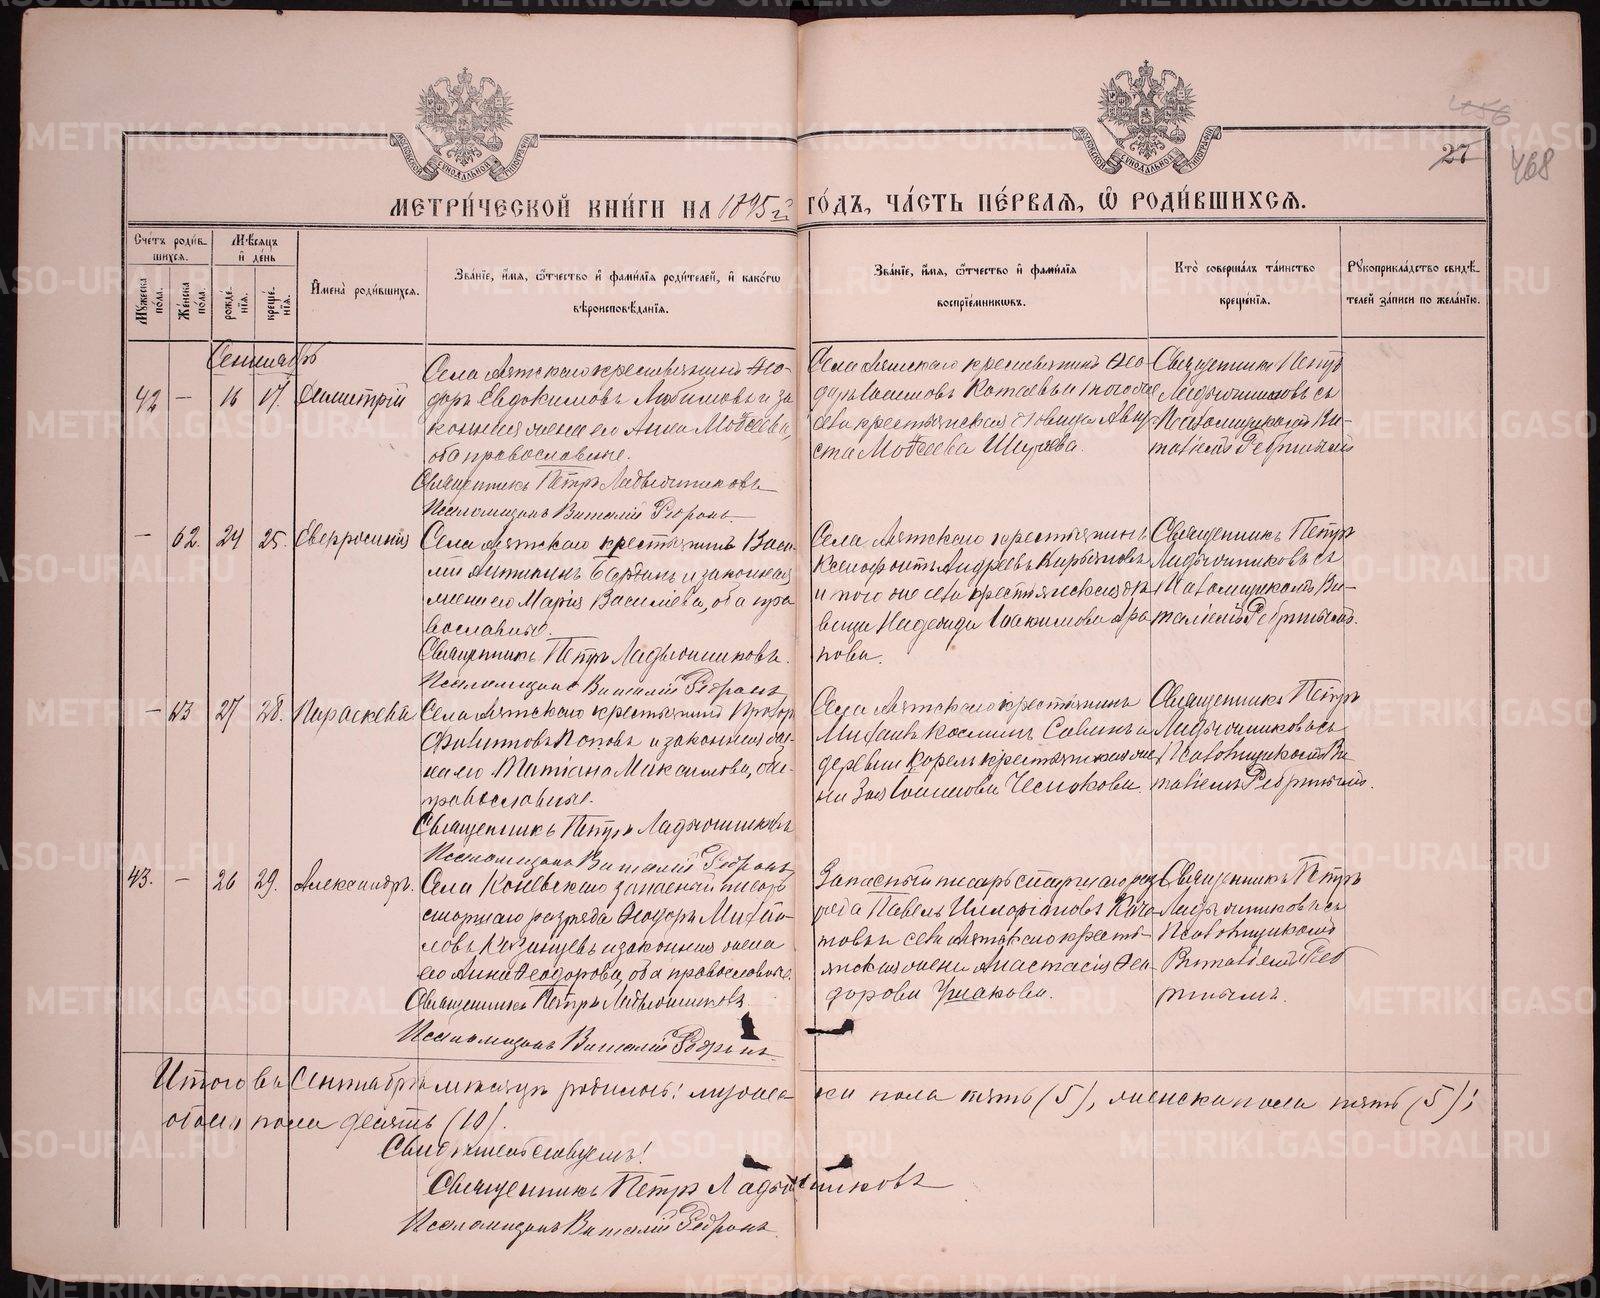 МОСКОВСКОЙ СѴНОДАЛЬНОЙ ТИПОГРАФІИ
МОСКОВСКОЙ СѴНОДАЛЬНОЙ ТИПОГРАФІИ
27
468
МЕТРИ́ЧЕСКОЙ КНИ́ГИ НА 1895й ГО́ДЪ, ЧА́СТЬ ПЕ́РВАЯ, Ѡ РОДИ́ВШИХСЯ.
Сче́тъ роди́в-
шихся.
Мꙋ́жеска по́ла.
Же́нска по́ла.
Мѣ́сяцъ и де́нь
рожде́-нїя.
креще́-нїя.
Имена̀ роди́вшихся.
Зва́нїе, имя, ѻтчество и фами́лїя роди́телей, и како́гѡ
вѣроисповѣ́данїя.
Зва́нїе, имя, ѻтчество и фами́лїя
воспрїе́мникѡвъ.
Кто̀ соверша́лъ та́инство
креще́нїя.
Рꙋкоприкла́дство свидѣ́-
телей за́писи по жела́нїю.
Сентябрь
42 — 16 17. Димитрій
Села Аятскаго крестьянинъ Ѳео-
доръ Евдокимовъ и за
конная жена его Анна Моѵсеева,
оба православные.
Священникъ Петръ Ладыжниковъ
Псаломщикъ Виталій Ребринъ.
Села Аятскаго крестьянинъ Ѳео-
доръ и того же
села крестьянская дѣвица Авгу-
ста Моѵсеева
Священникъ Петръ
Ладыжниковъ съ
Псаломщикомъ Ви-
таліемъ Ребринымъ
— 62. 24 25. Евфросинія
Села Аятскаго крестьянинъ Васи-
лій и законная
жена его Марія Василіева, оба пра
вославные.
Священникъ Петръ Ладыжниковъ.
Псаломщикъ Виталій Ребринъ
Села Аятскаго крестьянинъ
Ксенофонтъ Андреевъ
и того же села крестьянская дѣ
вица Надежда Іоакимова
Священникъ Петръ
Ладыжниковъ съ
Псаломщикомъ Ви-
таліемъ Ребринымъ.
— 63 27 28. Параскева
Села Аятскаго крестьянинъ Прохоръ
Филиповъ Поповъ и законная же-
на его Татіана Максимова, оба
православные.
Священникъ Петръ Ладыжниковъ
Псаломщикъ Виталій Ребринъ
Села Аятскаго крестьянинъ
Михаилъ Косминъ Савинъ и
деревни крестьянская же
на Іоаннова Чеснокова.
Священникъ Петръ
Ладыжниковъ съ
Псаломщикомъ Ви
таліемъ Ребринымъ.
43. — 26 29. Александръ.
Села Коневскаго запасный писарь
старшаго разряда Ѳеодоръ Михаи-
ловъ Казанцевъ и законная жена
его Анна Ѳеодорова, оба православные.
Священникъ Петръ Ладыжниковъ.
Псаломщикъ Виталій Ребринъ
Запасный писарь старшаго раз
ряда Павелъ
и села Аятскаго кресть-
янская жена Анастасія Ѳео-
дорова Ушакова.
Священникъ Петръ
Ладыжниковъ съ
Псаломщикомъ
Виталіемъ Реб
ринымъ.
Итого въ Сентябрѣ мѣсяцѣ родилось: мужеска пола пять (5), женска пола пять (5);
обоего пола десять (10).
Свидѣтельствуемъ:
Священникъ Петръ Ладыжниковъ
Псаломщикъ Виталій Ребринъ.